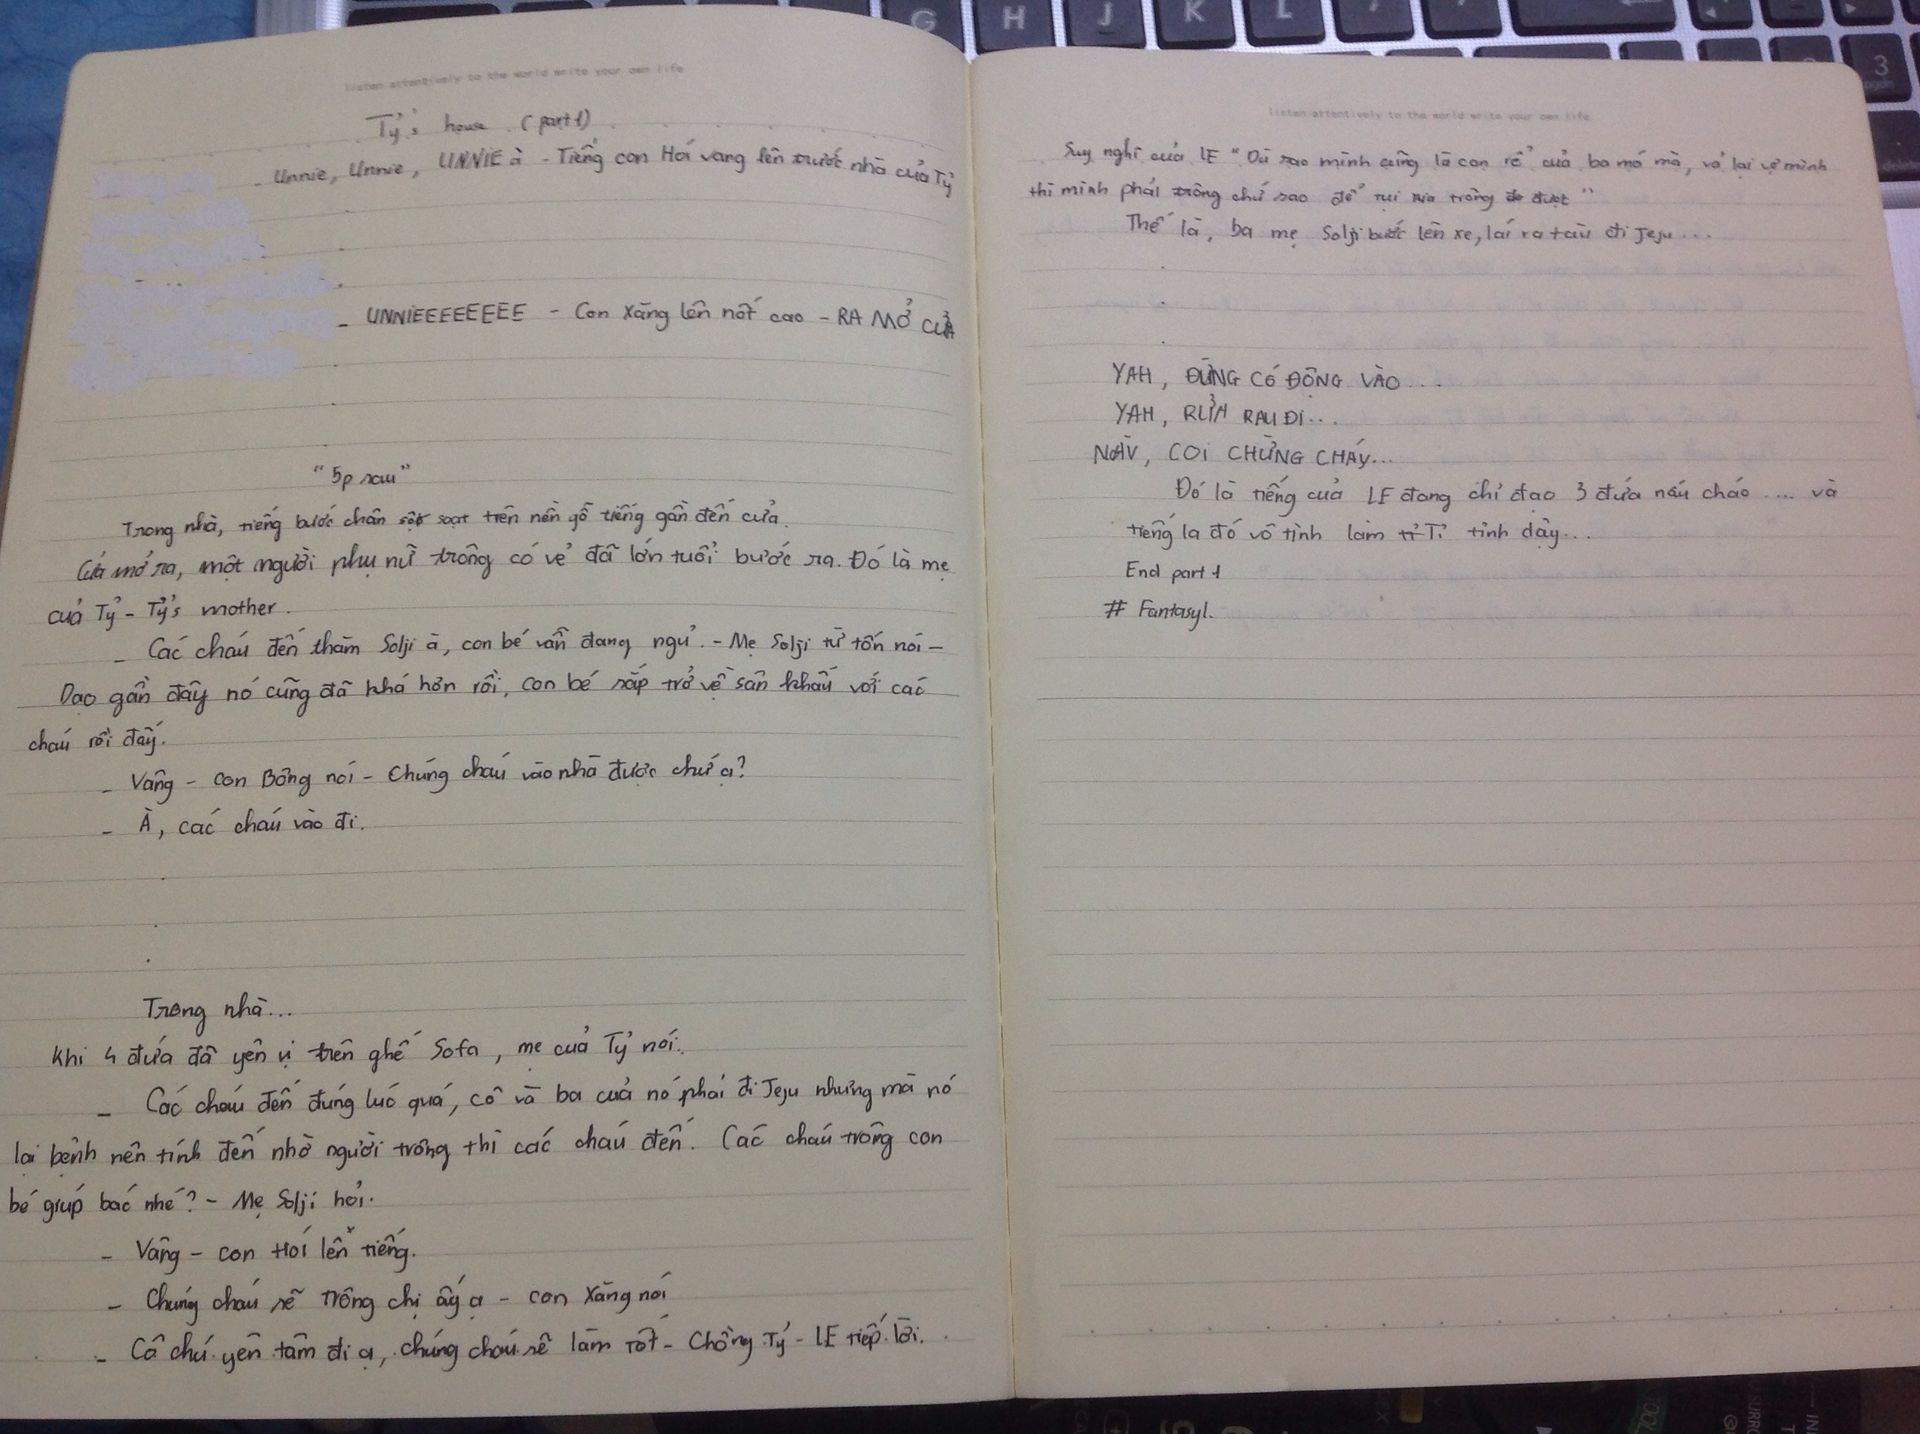 listen attentively to the world write your own life
Tỷ's house (part 1)
- Unnie, Unnie, UNNIE à - Tiếng con Hoí vang lên trước nhà của Tỷ
- UNNIEEEEEEEE - Con Xăng lên nốt cao - RA MỞ CỬA
"5p sau"
Trong nhà, tiếng bước chân soạt trên nền gỗ tiếng gần đến cửa.
Cửa mở ra, một người phụ nữ trông có vẻ đã lớn tuổi bước ra. Đó là mẹ
của Tỷ - Tỷ's mother.
- Các cháu đến thăm Solji à, con bé vẫn đang ngủ. - Mẹ Solji từ tốn nói -
Dạo gần đây nó cũng đã khá hơn rồi, con bé sắp trở về sân khấu với các
cháu rồi đấy.
- Vâng - con Bông nói - Chúng cháu vào nhà được chứ ạ?
- À, các cháu vào đi.
Trong nhà...
Khi 4 đứa đã yên vị trên ghế Sofa, mẹ của Tỷ nói:
- Các cháu đến đúng lúc quá, cô và ba của nó phải đi Jeju nhưng mà nó
lại bệnh nên tính đến nhờ người trông thì các cháu đến. Các cháu trông con
bé giúp bác nhé? - Mẹ Solji hỏi.
- Vâng - con Hoí lên tiếng.
- Chúng cháu sẽ trông chị ấy ạ - con Xăng nói
- Cô chú yên tâm đi ạ, chúng cháu sẽ làm tốt - Chồng Tỷ - LE tiếp lời.
listen attentively to the world write your own life
Suy nghĩ của LE "Dù sao mình cũng là con rể của ba má mà, vả lại vợ mình
thì mình phải trông chứ sao để tụi trông được"
Thế là, ba mẹ Solji bước lên xe, lái ra tàu đi Jeju...
YAH, ĐỪNG CÓ ĐỘNG VÀO...
YAH, RỬA RAU ĐI...
NÀY, COI CHỪNG CHÁY...
Đó là tiếng của LE đang chỉ đạo 3 đứa nấu cháo .... và
tiếng la đó vô tình làm Tỉ tỉnh dậy...
End part 1
# Fantasyl.